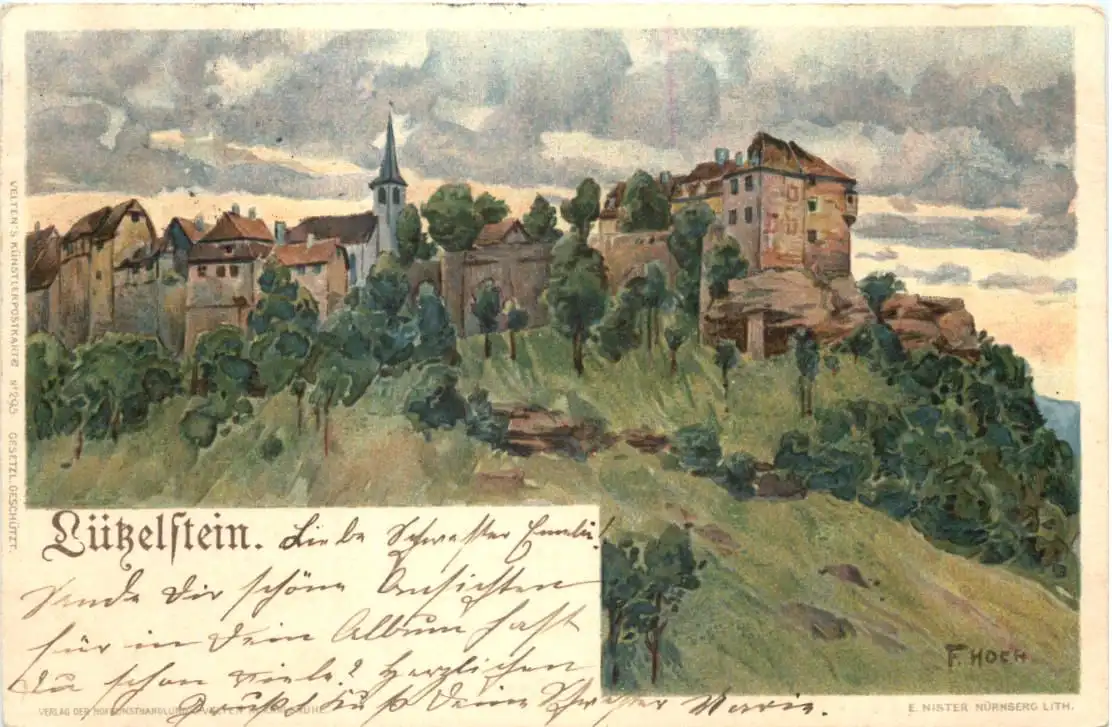 VELTEN'S KÜNSTLERPOSTKARTE Nº 295 GESETZL. GESCHÜTZT.
Lützelstein. Liebe Schwester Emilie!
Sende Dir schöne Ansichten
für in Dein Album hast
Du schon viele? Herzlichen
Gruß & Kuß Deine Schwester Marie.
F. HOCH
VERLAG DER HOFKUNSTHANDLUNG J. VELTEN KARLSRUHE
E. NISTER NÜRNBERG LITH.